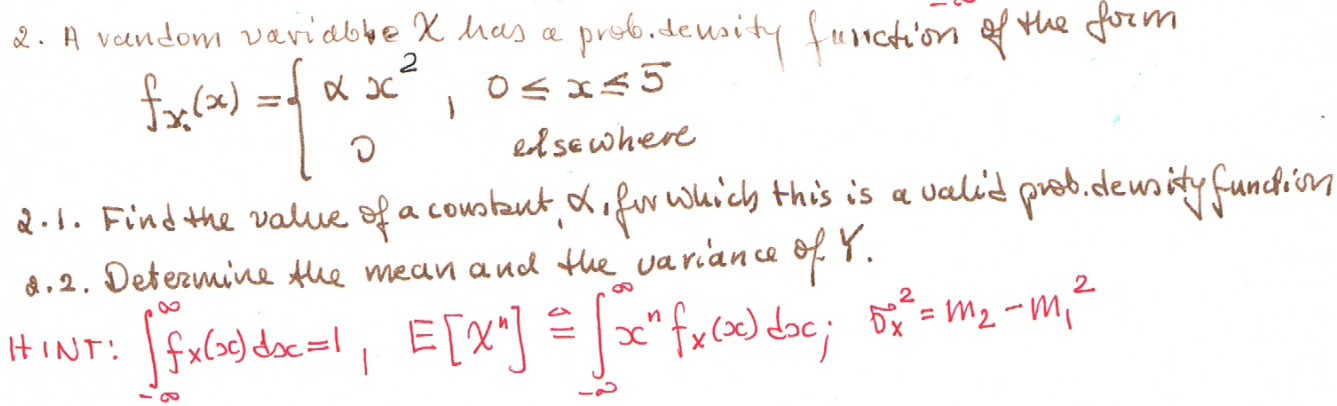 2. A random variable X has a prob. density function of the form
f_X(x) = { α x², 0 ≤ x ≤ 5
0 elsewhere
2.1. Find the value of a constant, α, for which this is a valid prob. density function
2.2. Determine the mean and the variance of Y.
HINT: ∫_{-∞}^{∞} f_X(x) dx = 1, E[Xⁿ] ≙ ∫_{-∞}^{∞} xⁿ f_X(x) dx; σ_X² = m₂ - m₁²